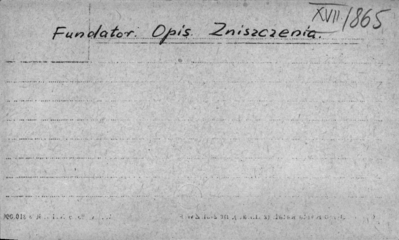 XVII/865
Fundator. Opis. Zniszczenia.